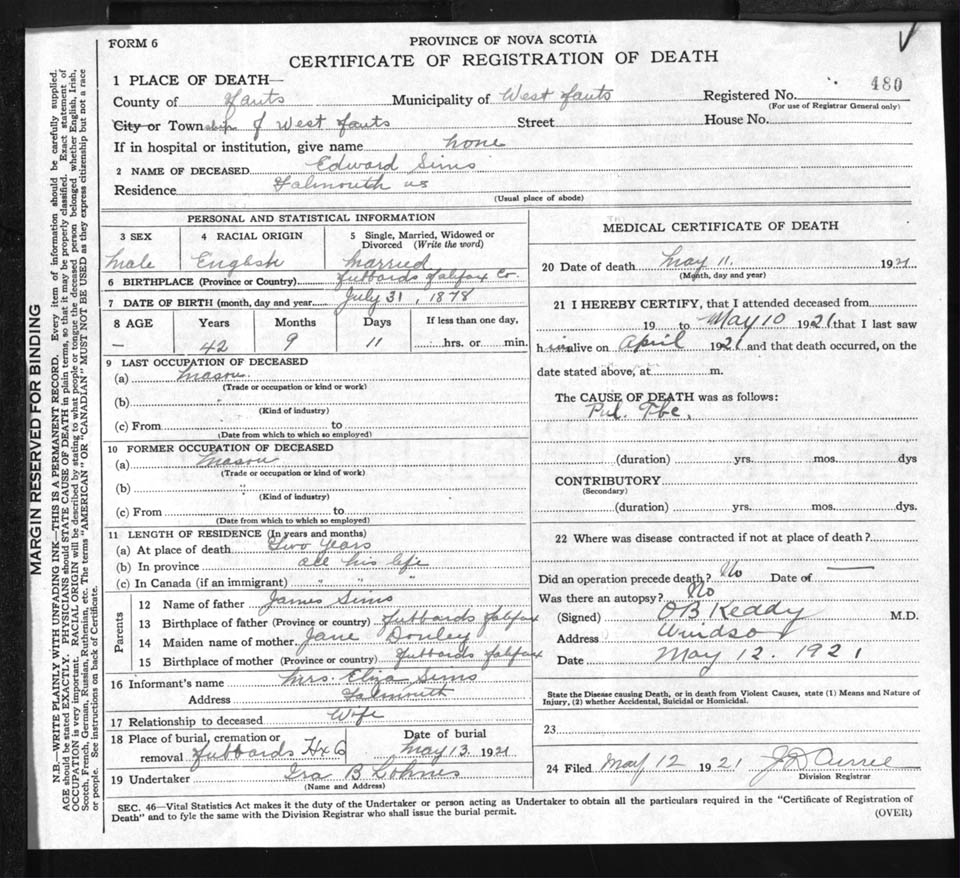 FORM 6
PROVINCE OF NOVA SCOTIA
CERTIFICATE OF REGISTRATION OF DEATH
480
1 PLACE OF DEATH—
County of Hants Municipality of West Hants Registered No.
(For use of Registrar General only)
City or Township of West Hants Street House No.
If in hospital or institution, give name none
2 NAME OF DECEASED Edward Sims
Residence Falmouth ns
(Usual place of abode)
PERSONAL AND STATISTICAL INFORMATION
3 SEX 4 RACIAL ORIGIN 5 Single, Married, Widowed or
Divorced (Write the word)
Male English Married
6 BIRTHPLACE (Province or Country) Hubbards Halifax Co.
7 DATE OF BIRTH (month, day and year) July 31, 1878
8 AGE Years Months Days If less than one day,
— 42 9 11 hrs. or min.
9 LAST OCCUPATION OF DECEASED
(a) Mason
(Trade or occupation or kind of work)
(b) "
(Kind of industry)
(c) From to
(Date from which to which so employed)
10 FORMER OCCUPATION OF DECEASED
(a) Mason
(Trade or occupation or kind of work)
(b) "
(Kind of industry)
(c) From to
(Date from which to which so employed)
11 LENGTH OF RESIDENCE (In years and months)
(a) At place of death Two Years
(b) In province all his life
(c) In Canada (if an immigrant) " " "
Parents
12 Name of father James Sims
13 Birthplace of father (Province or country) Hubbards Halifax
14 Maiden name of mother Jane Donley
15 Birthplace of mother (Province or country) Hubbards Halifax
16 Informant's name Mrs. Eliza Sims
Address Falmouth
17 Relationship to deceased Wife
18 Place of burial, cremation or Date of burial
removal Hubbards Hx Co May 13. 1921
19 Undertaker Ira B Lohnes
(Name and Address)
MEDICAL CERTIFICATE OF DEATH
20 Date of death May 11. 1921
(Month, day and year)
21 I HEREBY CERTIFY, that I attended deceased from
19 to May 10 1921 that I last saw
h im alive on April 1921 and that death occurred, on the
date stated above, at m.
The CAUSE OF DEATH was as follows:
Pul. Tbc.
(duration) yrs. mos. dys
CONTRIBUTORY
(Secondary)
(duration) yrs. mos. dys.
22 Where was disease contracted if not at place of death?
Did an operation precede death? No Date of —
Was there an autopsy? No
(Signed) OB Keddy M.D.
Address Windsor
Date May 12. 1921
State the Disease causing Death, or in death from Violent Causes, state (1) Means and Nature of
Injury, (2) whether Accidental, Suicidal or Homicidal.
23
24 Filed May 12 1921
Division Registrar
SEC. 46—Vital Statistics Act makes it the duty of the Undertaker or person acting as Undertaker to obtain all the particulars required in the "Certificate of Registration of
Death" and to fyle the same with the Division Registrar who shall issue the burial permit.
(OVER)
MARGIN RESERVED FOR BINDING
N.B.—WRITE PLAINLY WITH UNFADING INK—THIS IS A PERMANENT RECORD. Every item of information should be carefully supplied.
AGE should be stated EXACTLY. PHYSICIANS should STATE CAUSE OF DEATH in plain terms, so that it may be properly classified. Exact statement of
OCCUPATION is very important. RACIAL ORIGIN will be described by stating to what people or tongue the deceased person belonged whether English, Irish,
Scotch, French, German, Russian, Ruthenian, etc. The terms "AMERICAN" OR "CANADIAN" MUST NOT BE USED as they express citizenship but not a race
or people. See instructions on back of Certificate.